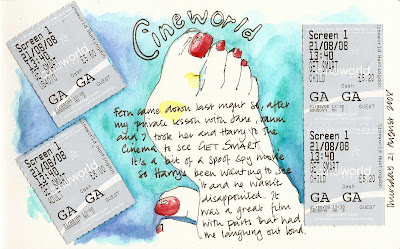 Cineworld
Screen 1
21/08/08
13:40
GET SMART
GA GA
Screen 1
21/08/08
13:40
GA GA
Fern came down last night so, after
my private lesson with Jane, Mum
and I took her and Harry to the
Cinema to see GET SMART.
It's a bit of a spoof spy movie
so Harry's been wanting to see
it and he wasn't
disappointed. It
was a great film
with parts that had
me laughing out loud.
Screen 1
21/08/08
13:40
GET SMART
CHILD £5.20
Cash
GA GA
GUEST
Screen 1
21/08/08
13:40
GET SMART
CHILD £5.20
Cash
GA GA
GUEST
Thursday 21 August 2008